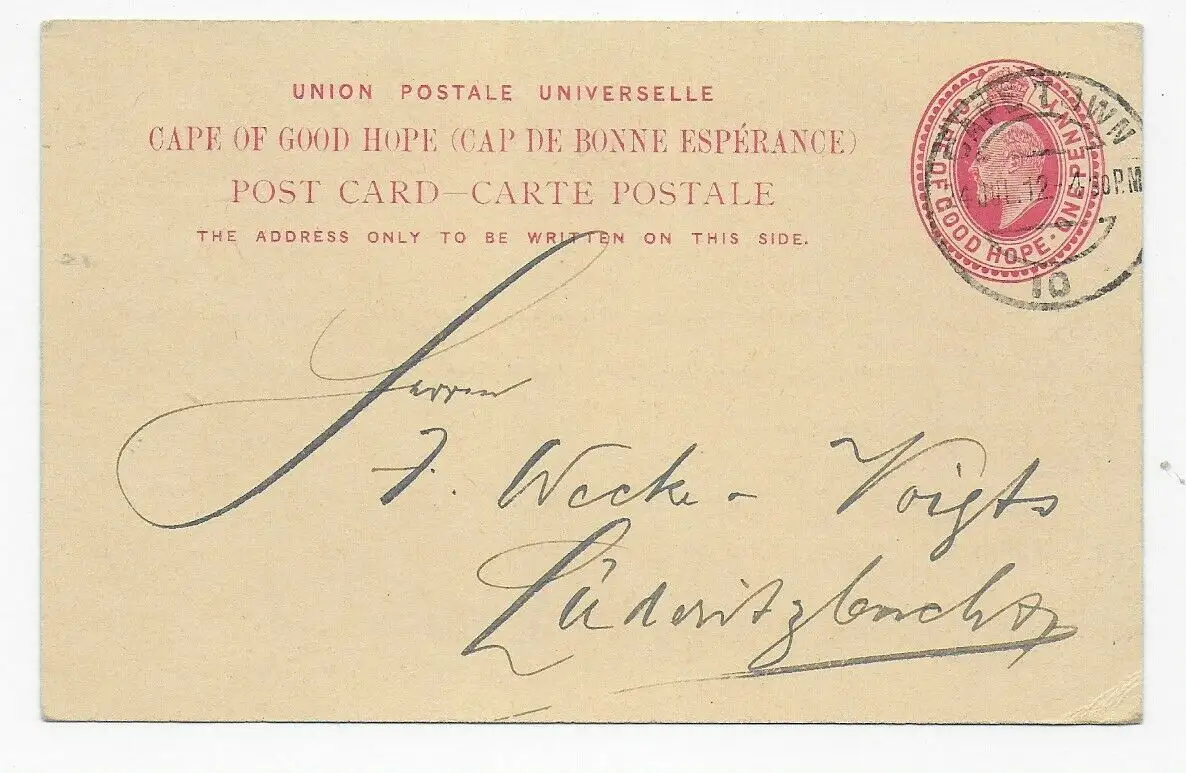 UNION POSTALE UNIVERSELLE
CAPE OF GOOD HOPE (CAP DE BONNE ESPÉRANCE)
POST CARD—CARTE POSTALE
THE ADDRESS ONLY TO BE WRITTEN ON THIS SIDE.
CAPE OF GOOD HOPE · ONE PENNY
CAPE TOWN
4 JUL 12 - 4 30 PM
10
Herrn
F. Wecke - Voigts
Lüderitzbucht